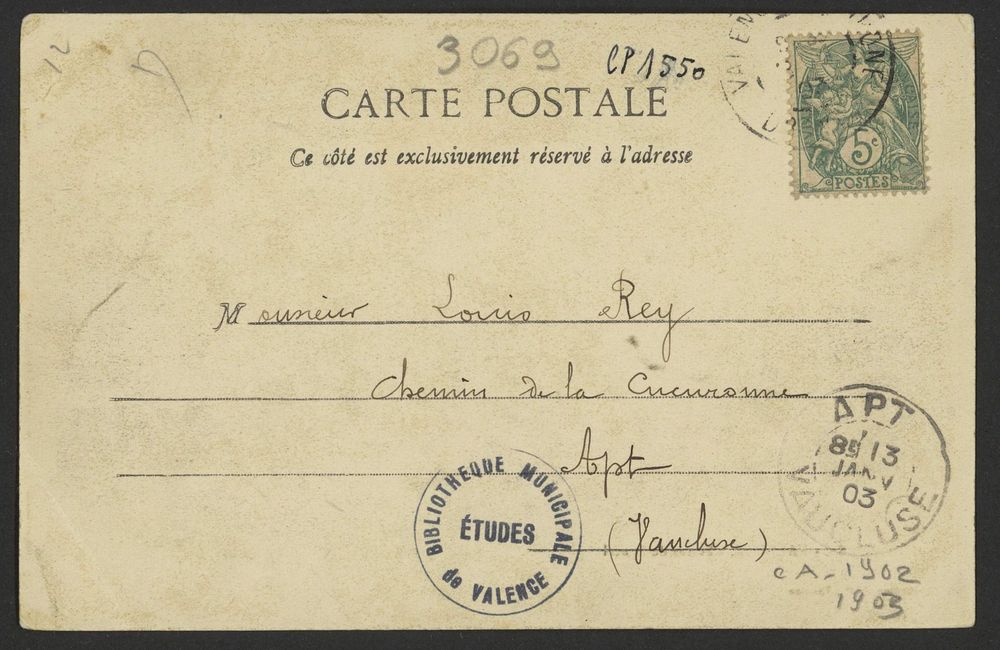 12
3069 CP1550
CARTE POSTALE
Ce côté est exclusivement réservé à l'adresse
5c
POSTES
Monsieur Louis Rey
Chemin de la Cucuronne
Apt
(Vaucluse)
APT
13
JANV
03
VAUCLUSE
BIBLIOTHEQUE MUNICIPALE
ÉTUDES
de VALENCE
CA-1902
1903